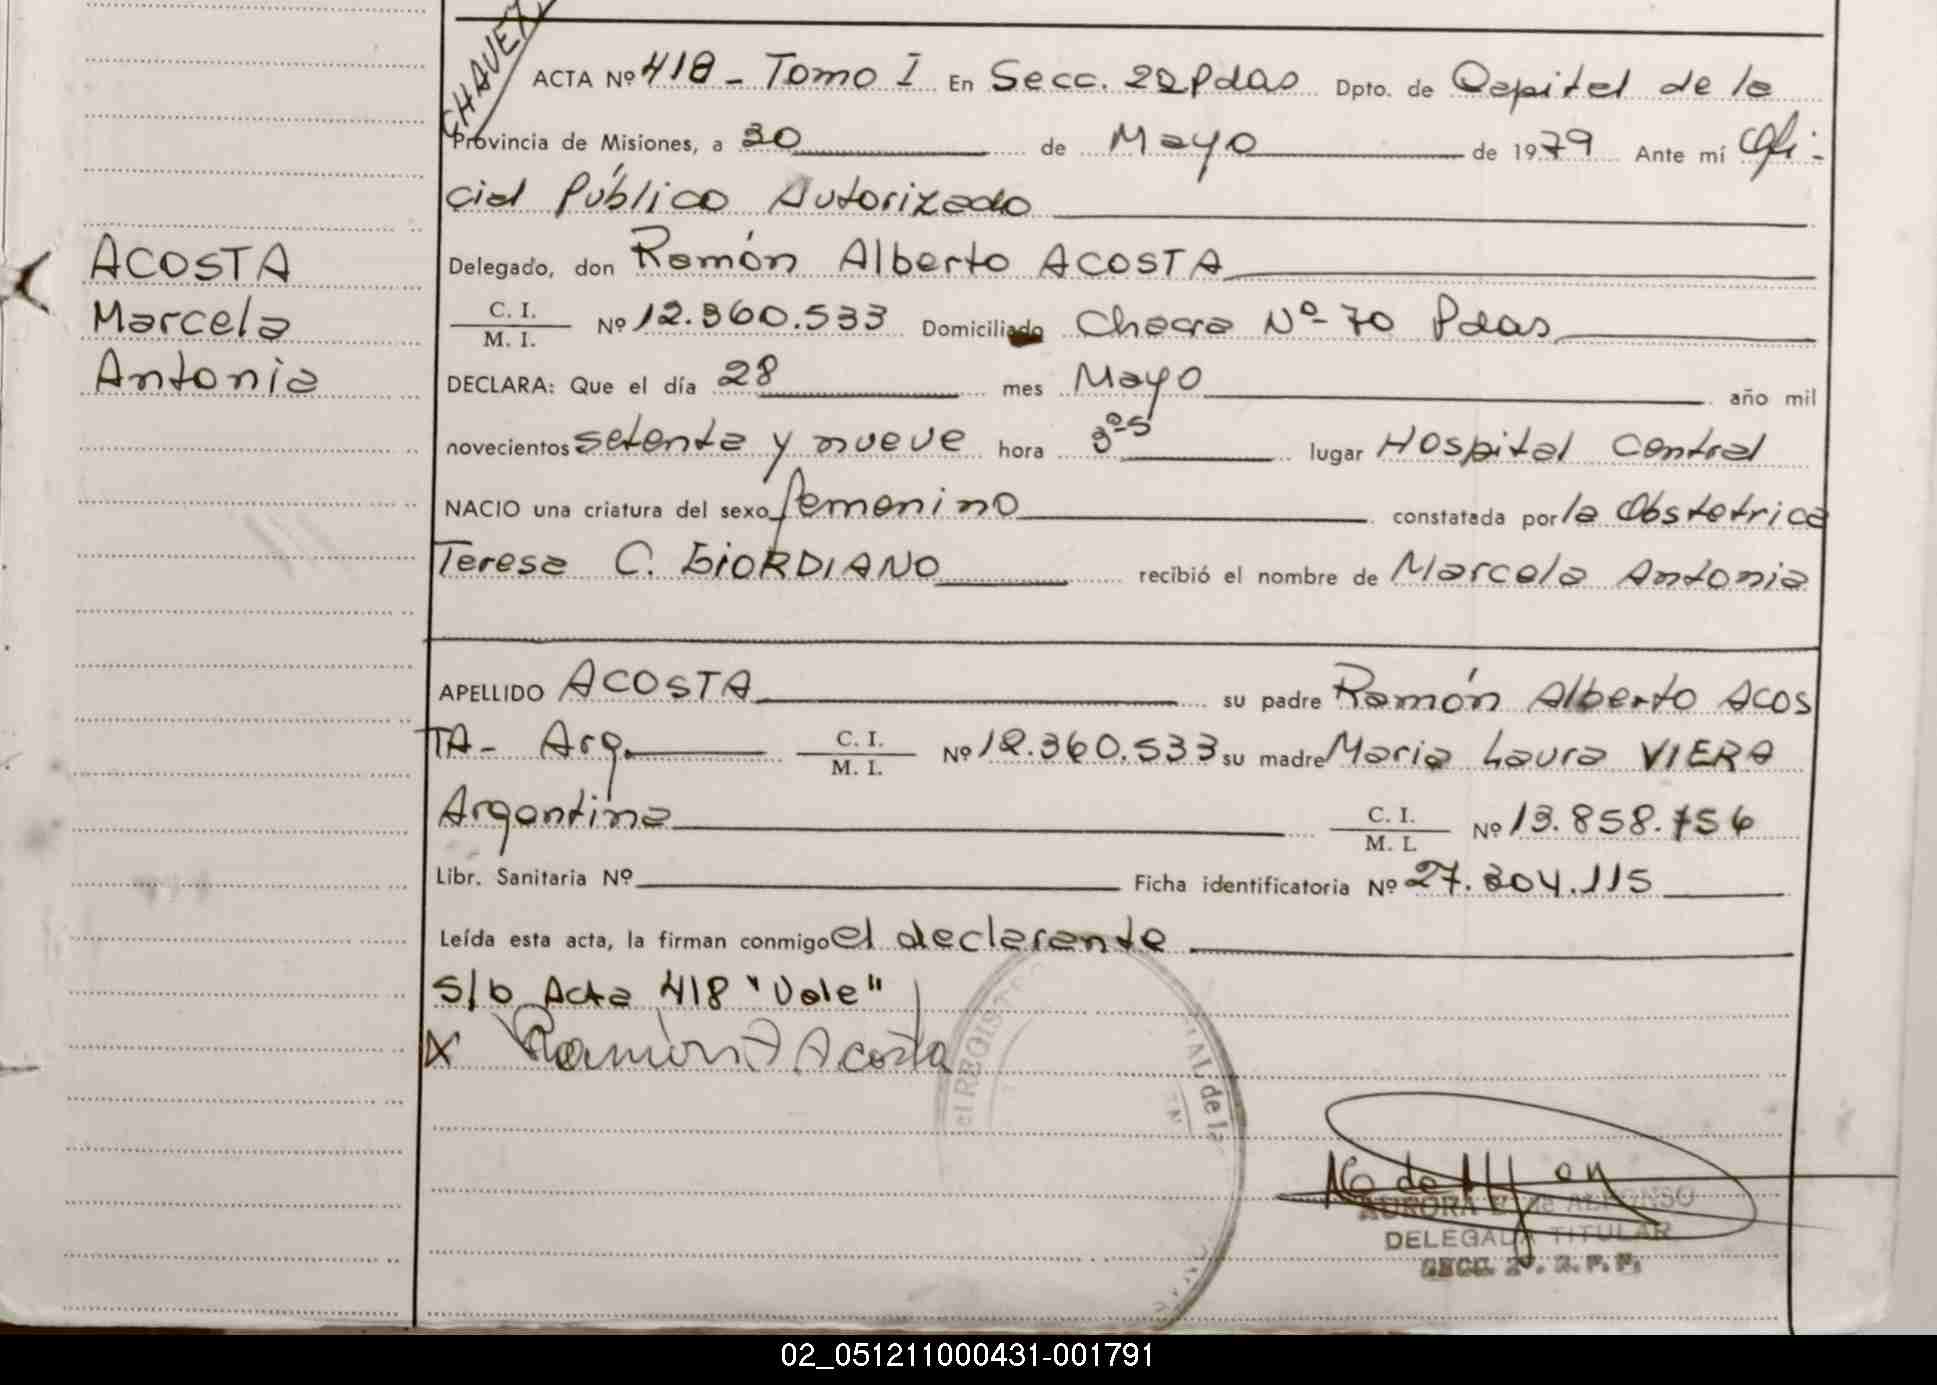 CHAVEZ
ACTA Nº 418 - Tomo I En Secc. 2ª Pdas Dpto. de Capital de la
Provincia de Misiones, a 30 de Mayo de 1979 Ante mí Ofi-
cial Público Autorizado
Delegado, don Ramón Alberto ACOSTA
C. I.
M. I.
Nº 12.360.533 Domiciliado Chacra Nº 70 Pdas
DECLARA: Que el día 28 mes Mayo año mil
novecientos setenta y nueve hora 3 lugar Hospital Central
NACIO una criatura del sexo femenino constatada por la Obstetrica
Teresa C. GIORDIANO recibió el nombre de Marcela Antonia
ACOSTA
Marcela
Antonia
APELLIDO ACOSTA su padre Ramón Alberto ACOS
TA - Arg. C. I.
M. I.
Nº 12.360.533 su madre Maria Laura VIERA
Argentina C. I.
M. I.
Nº 13.858.756
Libr. Sanitaria Nº Ficha identificatoria Nº 27.304.115
Leída esta acta, la firman conmigo el declarante
s/b Acta 418 "Vale"
X Ramón A Acosta
el REGIST
AL de la
AURORA de ALFONSO
DELEGADA TITULAR
SECC. 2ª. R.P.P.
02_051211000431-001791